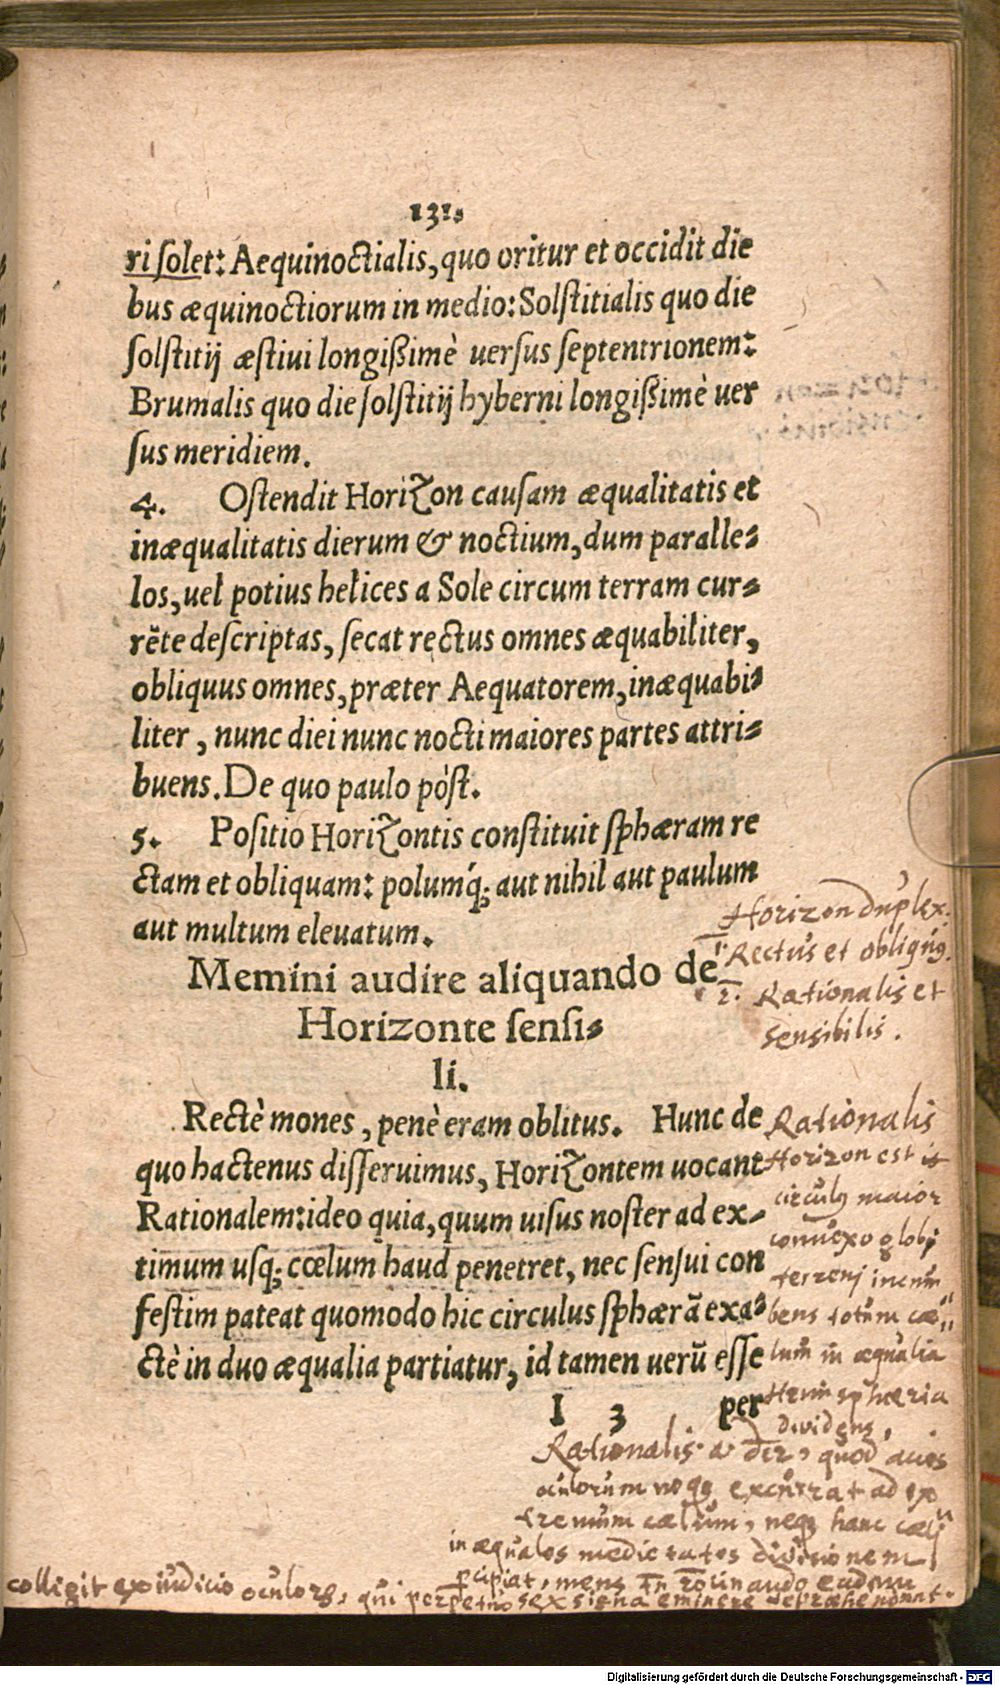 131.
ri solet: Aequinoctialis, quo oritur et occidit die
bus æquinoctiorum in medio: Solstitialis quo die
solstitij æstiui longißimè uersus septentrionem:
Brumalis quo die solstitij hyberni longißimè uer
sus meridiem.
4. Ostendit Horizon causam æqualitatis et
inæqualitatis dierum & noctium, dum paralle-
los, uel potius helices a Sole circum terram cur-
rẽte descriptas, secat rectus omnes æquabiliter,
obliquus omnes, præter Aequatorem, inæquabi-
liter, nunc diei nunc nocti maiores partes attri-
buens. De quo paulo pòst.
5. Positio Horizontis constituit sphæram re
ctam et obliquam: polumq́; aut nihil aut paulum
aut multum eleuatum.
Memini audire aliquando de
Horizonte sensi-
li.
Rectè mones, penè eram oblitus. Hunc de
quo hactenus disseruimus, Horizontem uocant
Rationalem: ideo quia, quum uisus noster ad ex-
timum usq; cœlum haud penetret, nec sensui con
festim pateat quomodo hic circulus sphærā exa-
ctè in duo æqualia partiatur, id tamen uerū esse
I 3 per
Horizon duplex.
1. Rectus et obliquus.
2. Rationalis et
sensibilis.
Rationalis
Horizon est
circulus maior
conuexo globi
terreni incum
bens totum cæ
lum in æqualia
Hemisphæria
diuidens,
Rationalis a dicitur, quod acies
oculorum excurrat ad ex
tremum cælum, neque hanc cæli
inæquales medietates diuisionem
percipiat, mens
colligit ex iudicio oculorum, qui perpetuo sex signa eminere deprehendunt.
Digitalisierung gefördert durch die Deutsche Forschungsgemeinschaft - DFG